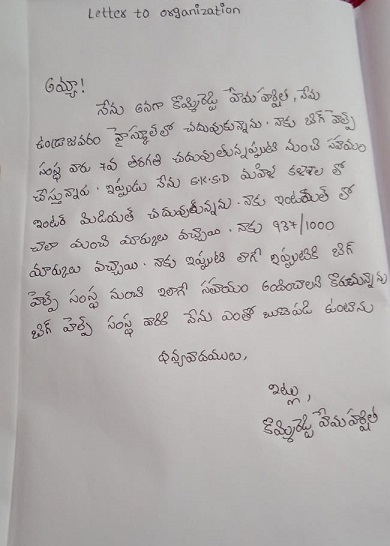 Letter to organization
అమ్మా!
నేను అనగా కొమ్మిరెడ్డి హేమ హర్షిత, నేను
ఉండ్రాజవరం హైస్కూల్ లో చదువుకున్నాను. నాకు బిగ్ హెల్ప్
సంస్థ వారు 7వ తరగతి చదువుతున్నప్పటి నుంచి సహాయం
చేస్తున్నారు. ఇప్పుడు నేను S.K.S.D మహిళ కళాశాల లో
ఇంటర్ మీడియట్ చదువుతున్నాను. నాకు ఇంటర్మీడియట్ లో
చాలా మంచి మార్కులు వచ్చాయి. నాకు 937/1000
మార్కులు వచ్చాయి. నాకు ఇప్పటి లాగే ఇప్పటికి బిగ్
హెల్ప్ సంస్థ నుంచి ఇలాగే సహాయం అందించాలని కోరుకున్నాను
బిగ్ హెల్ప్ సంస్థ వారికి నేను ఎంతో బుణపడి ఉంటాను
ధన్యవాదములు,
ఇట్లు,
కొమ్మిరెడ్డి హేమ హర్షిత